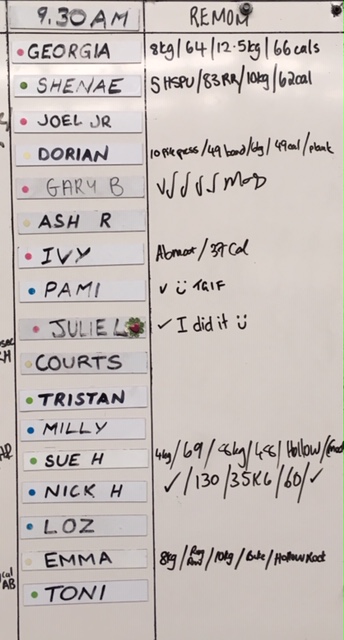 9.30 AM REMOM
GEORGIA 8kg / 64 / 12.5kg / 66 cals
SHENAE 5 HSPU / 83 RR / 10kg / 62 cal
JOEL JR
DORIAN 49 band / 49 cal / plank
GARY B
ASH R
IVY Abmat / 37 Cal
PAMI ✓ TGIF
JULIE L ✓ I did it
COURTS
TRISTAN
MILLY
SUE H 4kg / 69 / 48 / Hollow
NICK H ✓ / 130 / 35KG / 60 / ✓
LOZ
EMMA 8kg / Ring Row / 10kg / Bike / Hollow Rock
TONI